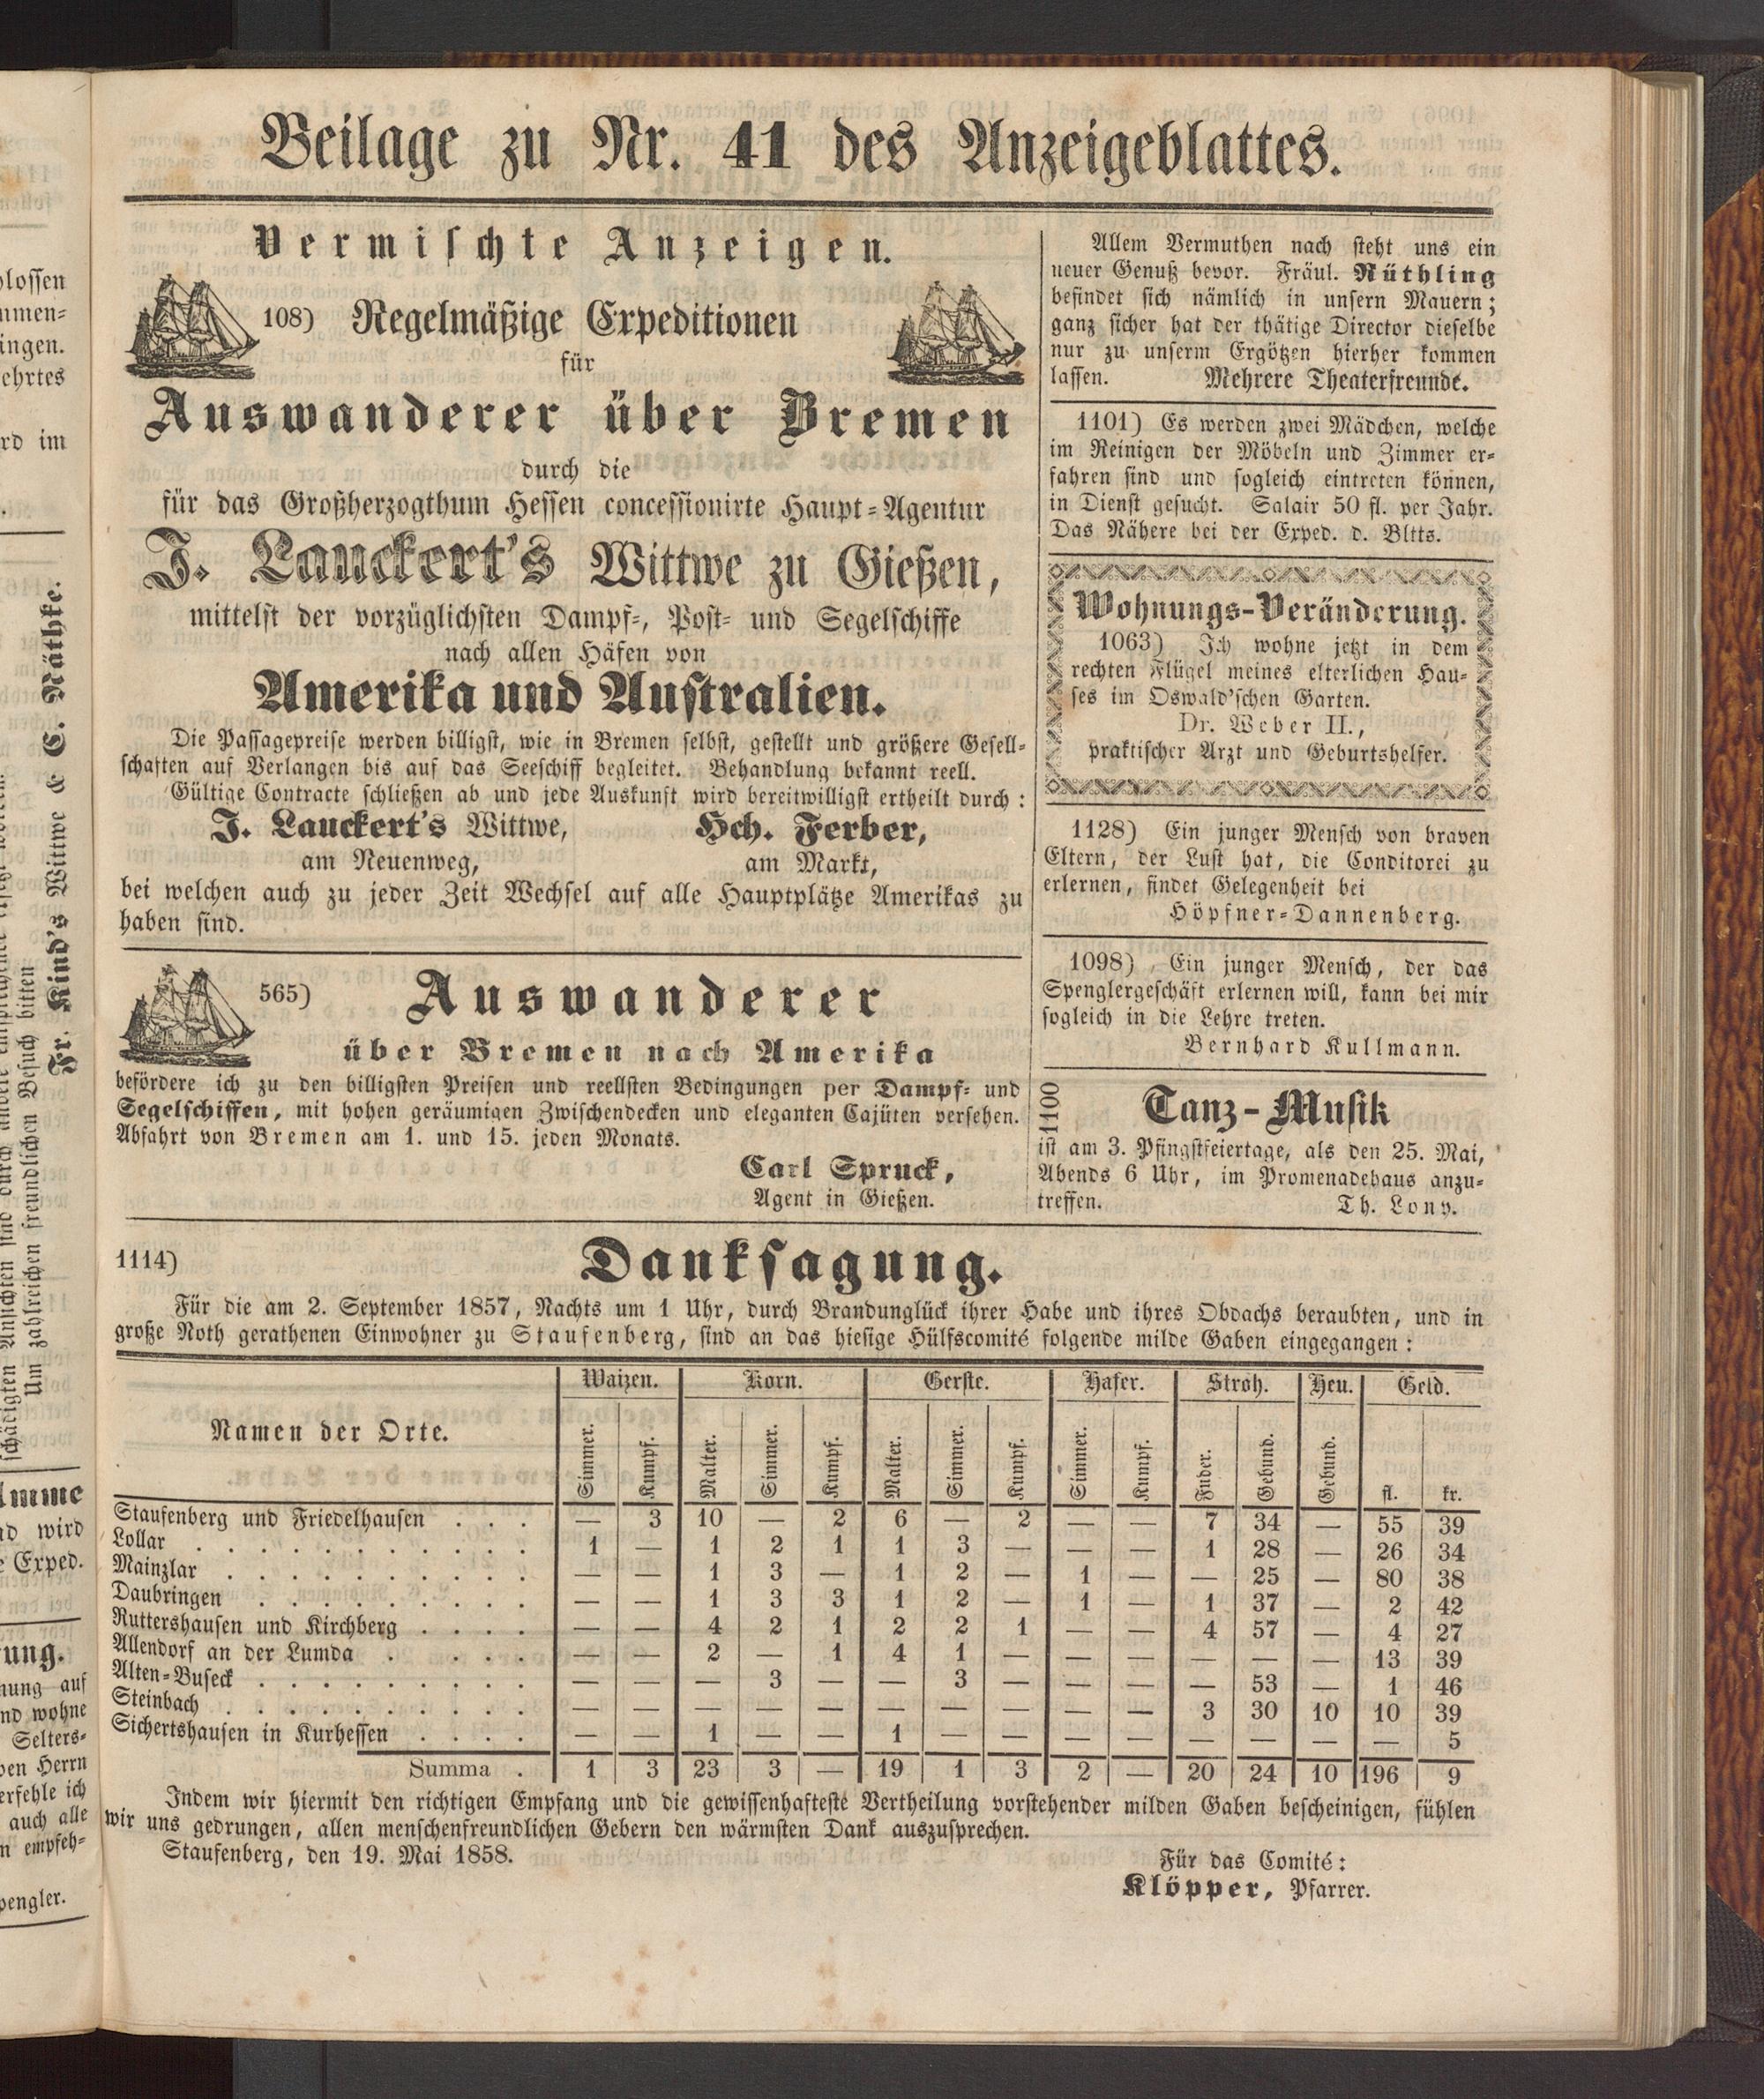 Beilage zu Nr. 41 des Anzeigeblattes.
Vermischte Anzeigen.
108) Regelmäßige Expeditionen
für
Auswanderer über Bremen
durch die
für das Großherzogthum Hessen concessionirte Haupt-Agentur
J. Lauckert's Wittwe zu Gießen,
mittelst der vorzüglichsten Dampf-, Post- und Segelschiffe
nach allen Häfen von
Amerika und Australien.
Die Passagepreise werden billigst, wie in Bremen selbst, gestellt und größere Gesell-
schaften auf Verlangen bis auf das Seeschiff begleitet. Behandlung bekannt reell.
Gültige Contracte schließen ab und jede Auskunft wird bereitwilligst ertheilt durch:
J. Lauckert's Wittwe, Hch. Ferber,
am Neuenweg, am Markt,
bei welchen auch zu jeder Zeit Wechsel auf alle Hauptplätze Amerikas zu
haben sind.
565) Auswanderer
über Bremen nach Amerika
befördere ich zu den billigsten Preisen und reellsten Bedingungen per Dampf- und
Segelschiffen, mit hohen geräumigen Zwischendecken und eleganten Cajüten versehen.
Abfahrt von Bremen am 1. und 15. jeden Monats.
Carl Spruck,
Agent in Gießen.
Allem Vermuthen nach steht uns ein
neuer Genuß bevor. Fräul. Rüthling
befindet sich nämlich in unsern Mauern;
ganz sicher hat der thätige Director dieselbe
nur zu unserm Ergötzen hierher kommen
lassen. Mehrere Theaterfreunde.
1101) Es werden zwei Mädchen, welche
im Reinigen der Möbeln und Zimmer er-
fahren sind und sogleich eintreten können,
in Dienst gesucht. Salair 50 fl. per Jahr.
Das Nähere bei der Exped. d. Bltts.
Wohnungs-Veränderung.
1063) Ich wohne jetzt in dem
rechten Flügel meines elterlichen Hau-
ses im Oswald'schen Garten.
Dr. Weber II.,
praktischer Arzt und Geburtshelfer.
1128) Ein junger Mensch von braven
Eltern, der Lust hat, die Conditorei zu
erlernen, findet Gelegenheit bei
Höpfner-Dannenberg.
1098) Ein junger Mensch, der das
Spenglergeschäft erlernen will, kann bei mir
sogleich in die Lehre treten.
Bernhard Kullmann.
1100 Tanz-Musik
ist am 3. Pfingstfeiertage, als den 25. Mai,
Abends 6 Uhr, im Promenadehaus anzu-
treffen. Th. Lony.
1114) Danksagung.
Für die am 2. September 1857, Nachts um 1 Uhr, durch Brandunglück ihrer Habe und ihres Obdachs beraubten, und in
große Noth gerathenen Einwohner zu Staufenberg, sind an das hiesige Hülfscomité folgende milde Gaben eingegangen:
Namen der Orte. Waizen. Korn. Gerste. Hafer. Stroh. Heu. Geld.
Simmer. Kumpf. Malter. Simmer. Kumpf. Malter. Simmer. Kumpf. Simmer. Kumpf. Fuder. Gebund. Gebund. fl. kr.
Staufenberg und Friedelhausen . . . — 3 10 — 2 6 — 2 — — 7 34 — 55 39
Lollar . . . . . . . . . . . 1 — 1 2 1 1 3 — — — 1 28 — 26 34
Mainzlar . . . . . . . . . . — — 1 3 — 1 2 — 1 — — 25 — 80 38
Daubringen . . . . . . . . . — — 1 3 3 1 2 — 1 — 1 37 — 2 42
Ruttershausen und Kirchberg . . . . — — 4 2 1 2 2 1 — — 4 57 — 4 27
Allendorf an der Lumda . . . . — — 2 — 1 4 1 — — — — — — 13 39
Alten-Buseck . . . . . . . . . — — — 3 — — 3 — — — — 53 — 1 46
Steinbach . . . . . . . . . . — — — — — — — — — — 3 30 10 10 39
Sichertshausen in Kurhessen . . . . — — 1 — — 1 — — — — — — — — 5
Summa . 1 3 23 3 — 19 1 3 2 — 20 24 10 196 9
Indem wir hiermit den richtigen Empfang und die gewissenhafteste Vertheilung vorstehender milden Gaben bescheinigen, fühlen
wir uns gedrungen, allen menschenfreundlichen Gebern den wärmsten Dank auszusprechen.
Staufenberg, den 19. Mai 1858.
Für das Comité:
Klöpper, Pfarrer.
ehrtes
rd im
Fr. Kind's Wittwe & C. Näthke.
Um zahlreichen freundlichen Besuch bitten
wird
Exped.
auf
wohne
Selters-
Herrn
ich
auch alle
empfeh-